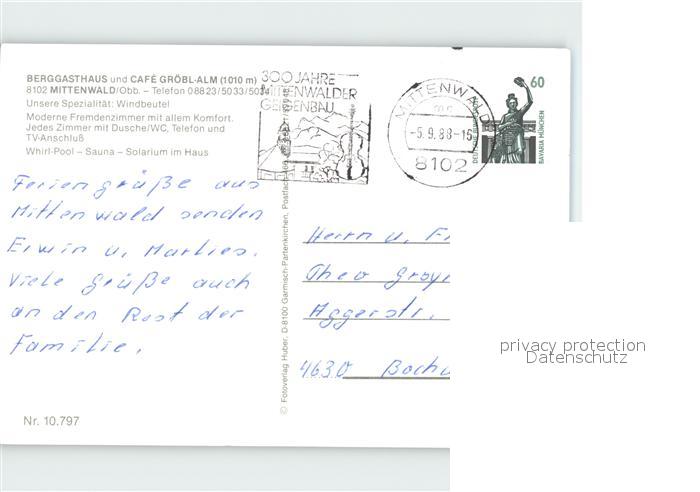 BERGGASTHAUS und CAFÉ GRÖBL-ALM (1010 m)
8102 MITTENWALD/Obb. – Telefon 08823/5033/5034
Unsere Spezialität: Windbeutel
Moderne Fremdenzimmer mit allem Komfort.
Jedes Zimmer mit Dusche/WC, Telefon und
TV-Anschluß
Whirl-Pool – Sauna – Solarium im Haus
300 JAHRE
MITTENWALDER
GEIGENBAU
MITTENWALD
-5.9.88-16
8102
60
DEUTSCHE BUNDESPOST
BAVARIA MÜNCHEN
Feriengrüße aus
Mittenwald senden
Erwin u. Marlies.
Viele Grüße auch
an den Rest der
Familie.
© Fotoverlag Huber, D-8100 Garmisch-Partenkirchen, Postfach
Herrn u. F
Theo
Aggerstr.
4630 Bochu
privacy protection
Datenschutz
Nr. 10.797